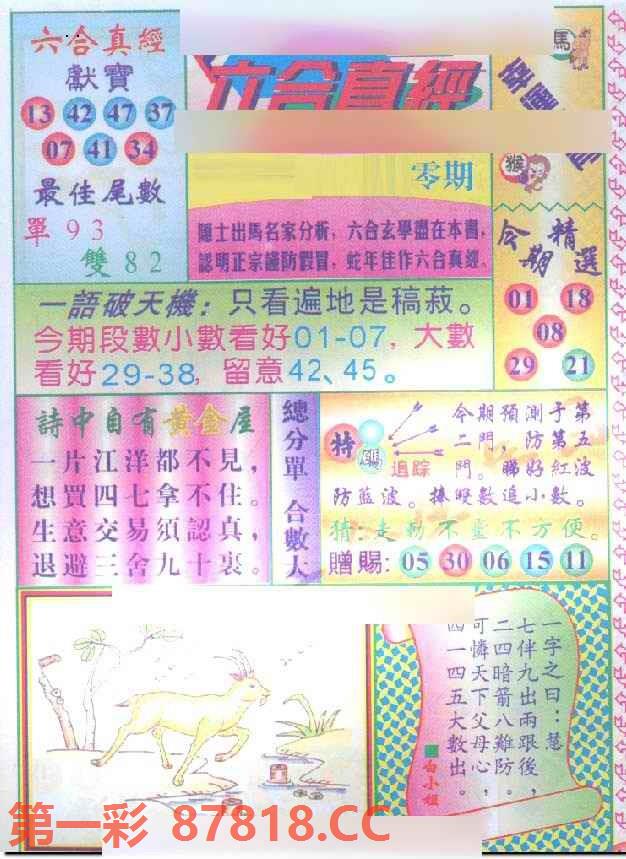 六合真經
獻寶
13 42 47 37
07 41 34
最佳尾數
單93
雙82
六合真經
零期
隱士出馬名家分析，六合玄學盡在本書，
認明正宗謹防假冒，蛇年佳作六合真經。
馬
猴
今期精選
01 18
08
29 21
一語破天機：只看遍地是稿菽。
今期段數小數看好01-07，大數
看好29-38，留意42、45。
詩中自有黃金屋
一片江洋都不見，
想買四七拿不住。
生意交易須認真，
退避三舍九十裏。
總分單 合數大
特
追踪
今期預測于第
二門，防第五
門。睇好紅波
防藍波。捧
數追小數。
猜:走動不靈不方便。
贈賜: 05 30 06 15 11
一字之曰：慧
七伴九出兩跟後，
二四暗箭八難防。
可憐天下父母心，
四一四五大數出。
白小姐
第一彩 87818.CC